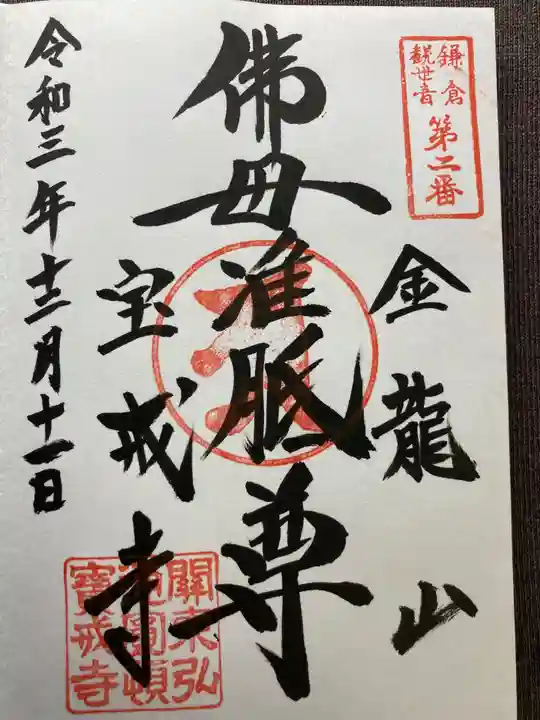 鎌倉
観世音
第二番
金龍山
佛母准胝尊
宝戒寺
令和三年十二月十一日
關東弘
通圓頓
寶戒寺